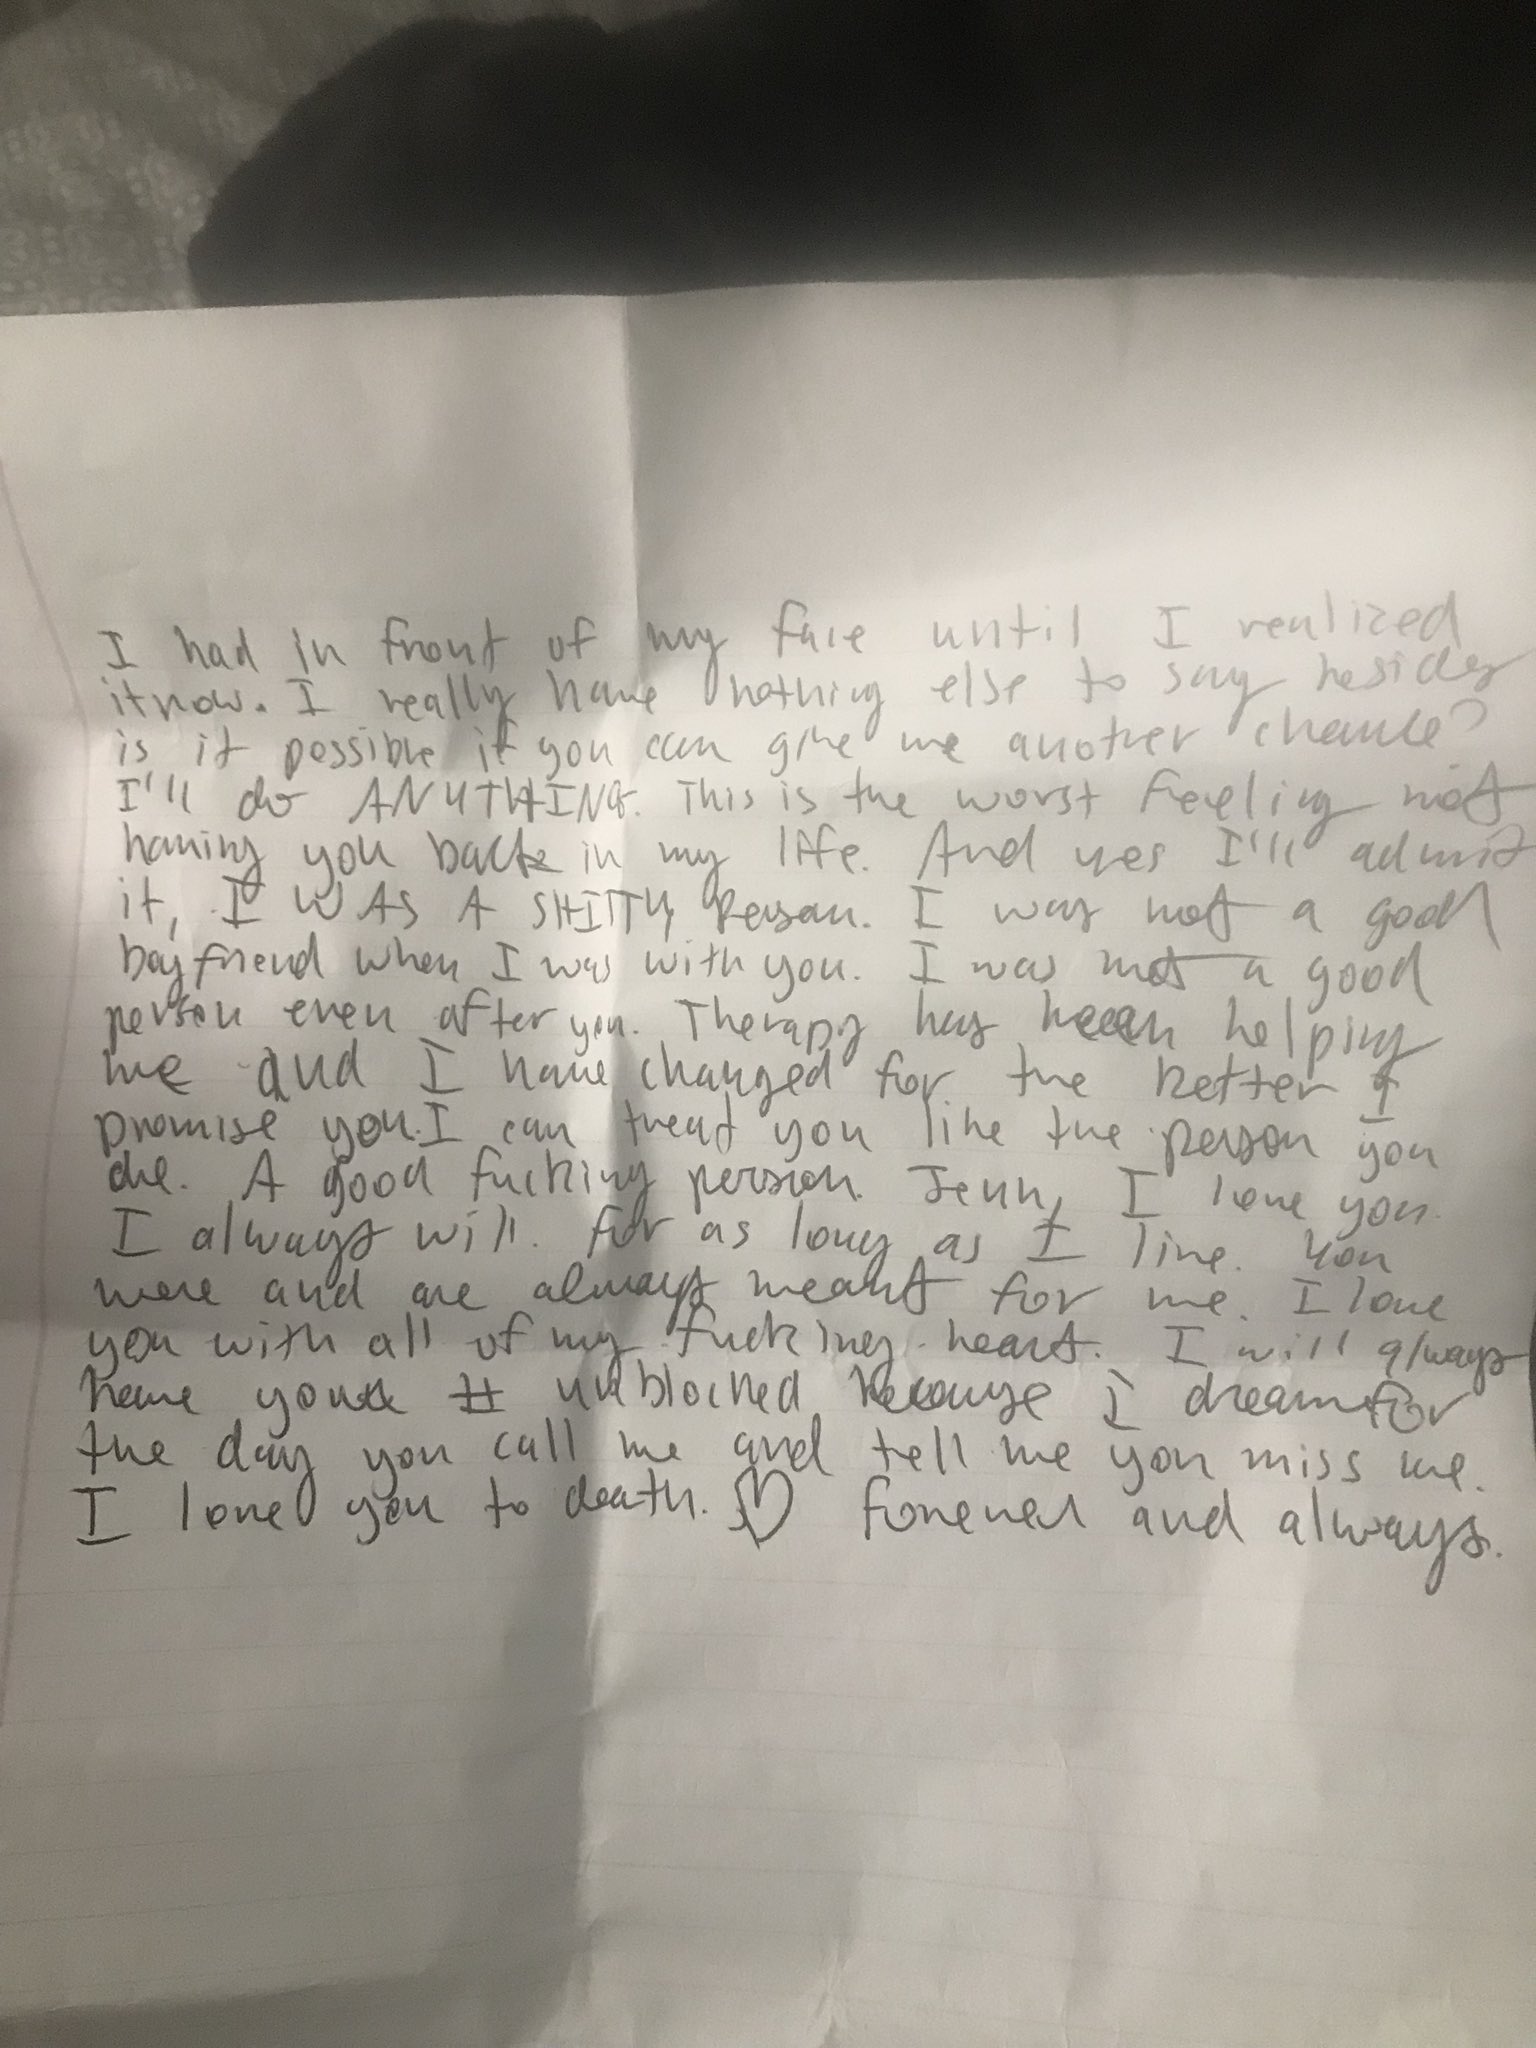 I had in front of my face until I realized
it now. I really have nothing else to say besides
is it possible if you can give me another chance?
I'll do ANYTHING. This is the worst feeling not
having you back in my life. And yes I'll admit
it, I WAS A SHITTY Person. I was not a good
boyfriend when I was with you. I was not a good
person even after you. Therapy has been helping
me and I have changed for the better I
promise you. I can treat you like the person you
are. A good fucking person. Jenn, I love you.
I always will. For as long as I live. You
were and are always meant for me. I love
you with all of my fucking heart. I will always
have you unblocked because I dream for
the day you call me and tell me you miss me.
I love you to death. ♡ forever and always.